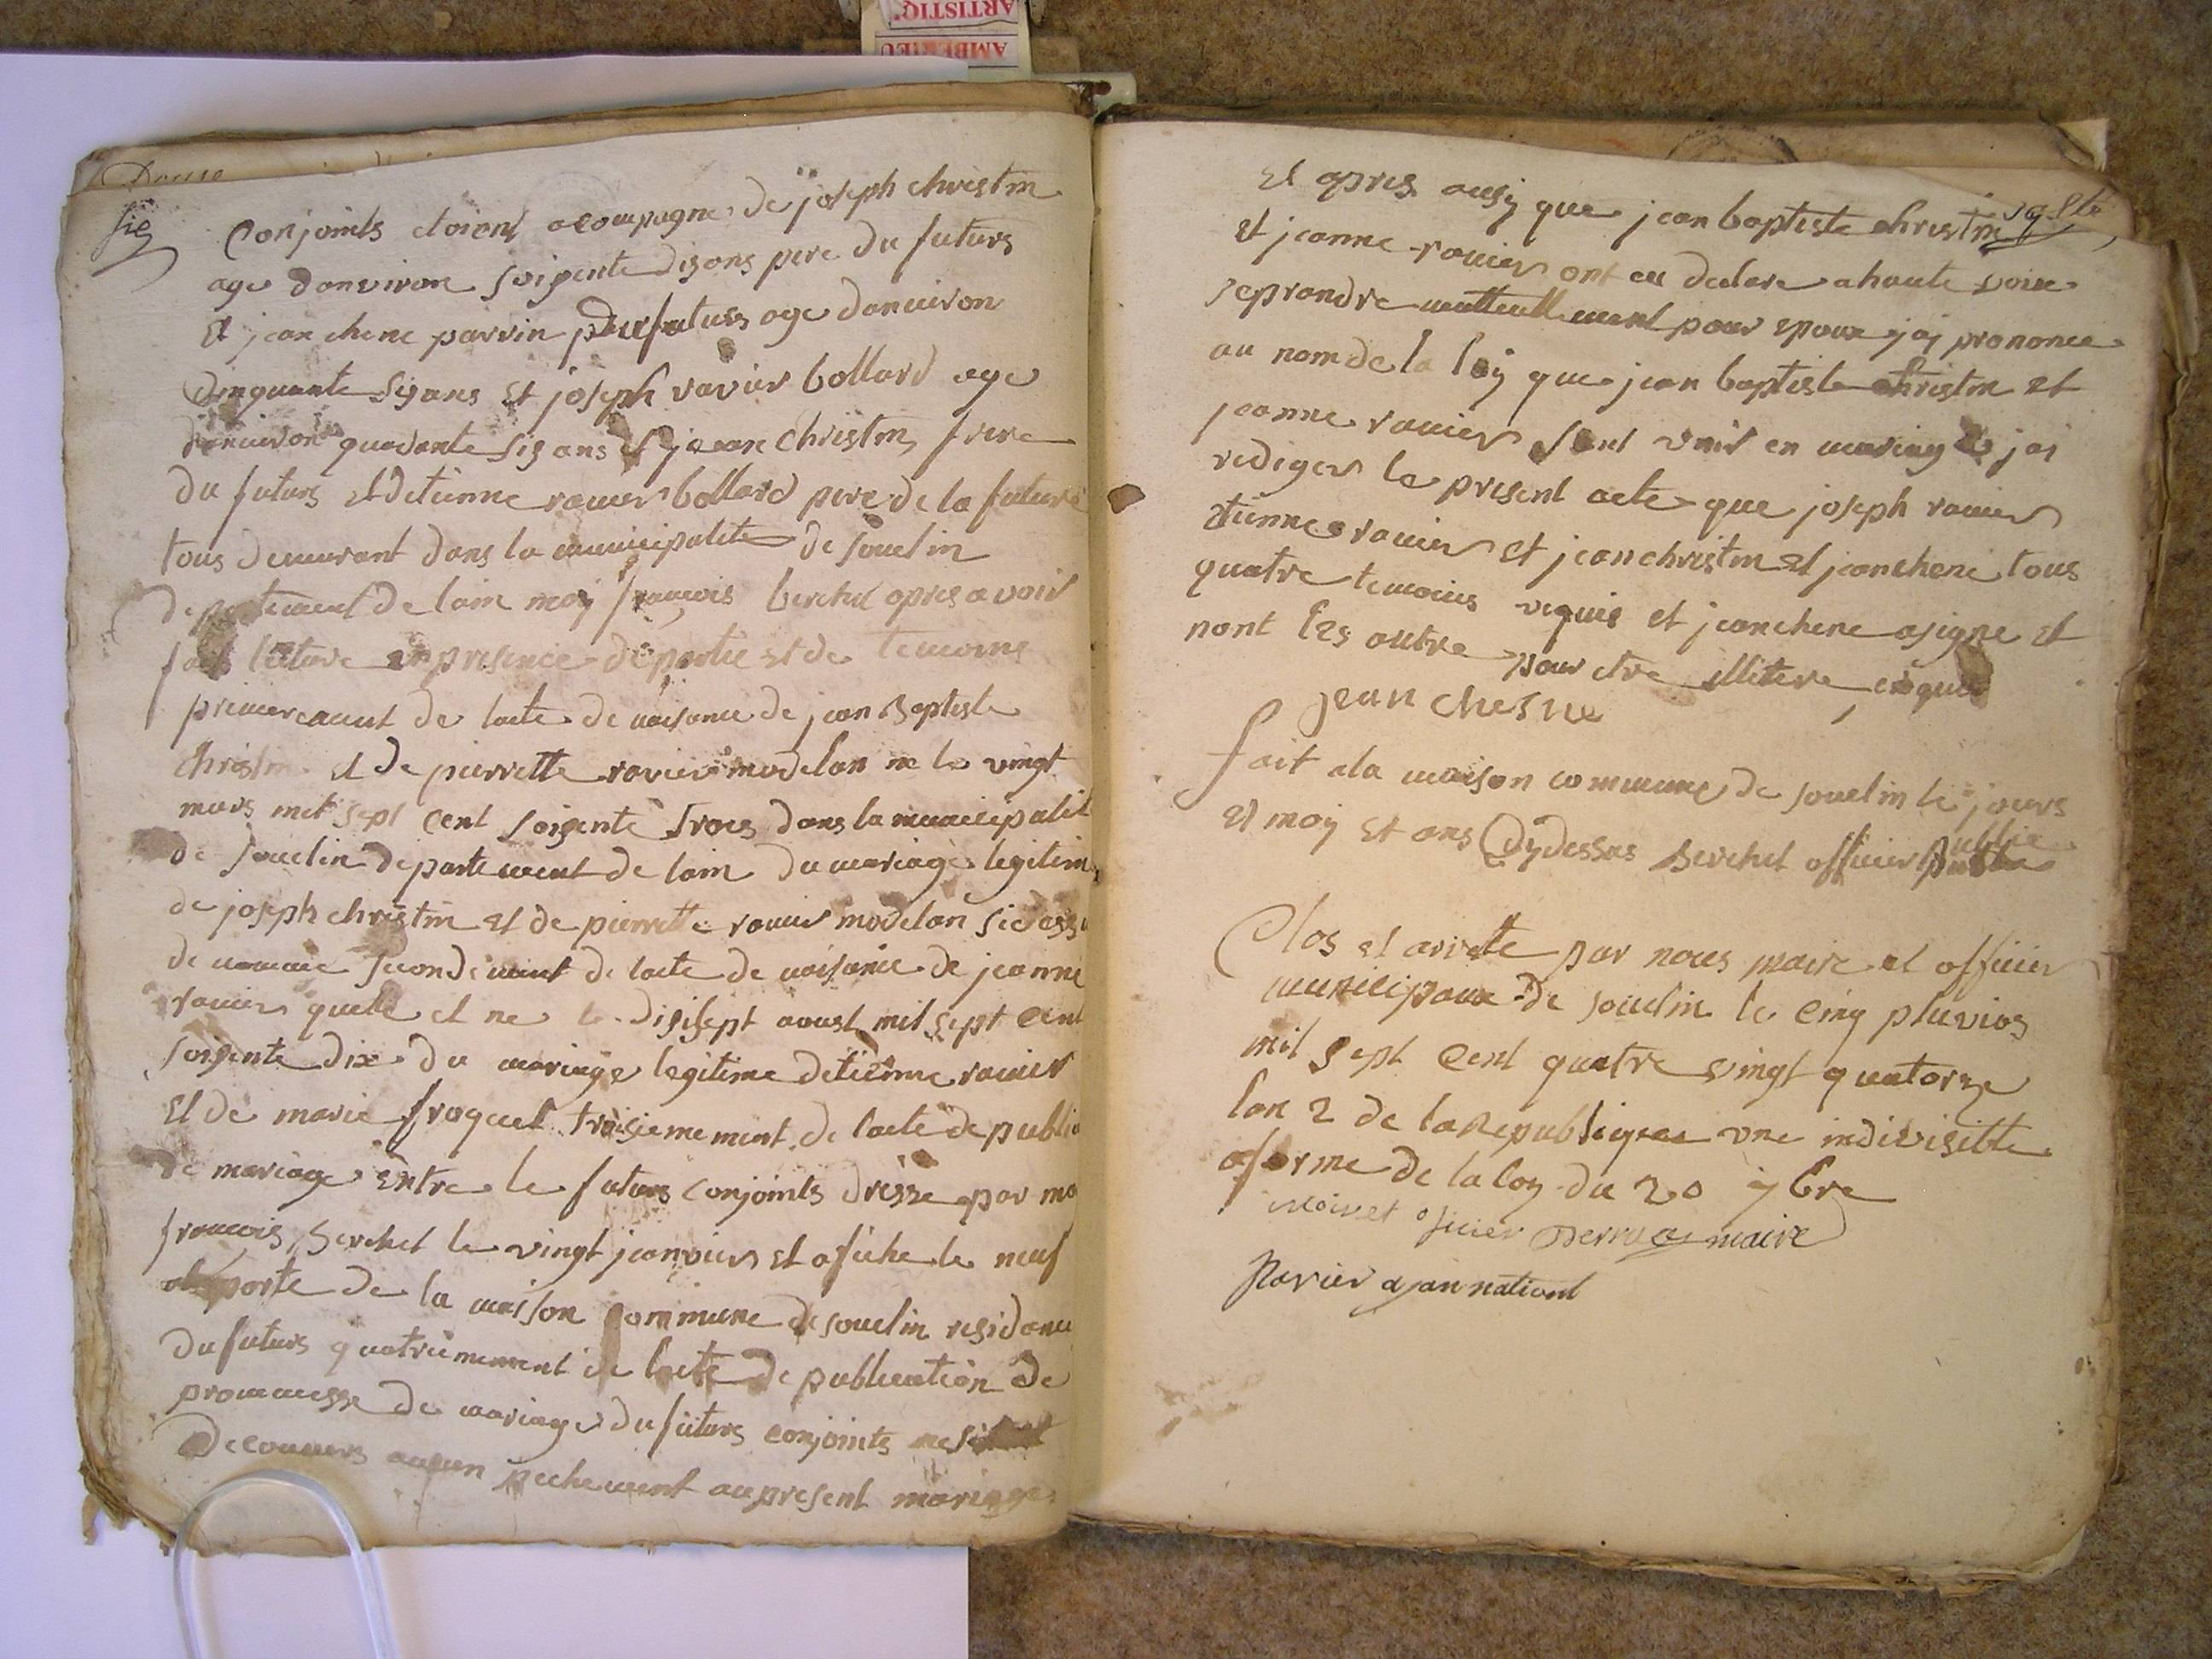 ARTISTIQ.
AMBERIEU
Douse
sig
Conjoints etoient acoumpagne de joseph christin
age danviron soigente dizans pere du futurs
Et jean chene parrin du futurs age danviron
Cinquante sizans et joseph ravier bollard age
danviron quarante siz ans et jean christin frere
du futurs et detienne ravier bollard pere de la future
tous demurant dans la municipalite de souclin
departement de lain moy francois berchet apres avoir
fait lecture en presence de partie et de temoins
premierement de lacte de naisance de jean Baptiste
christin et de pierrette ravier modelan ne le vingt
mars mil sept cent soigente trois dans la municipalit
de souclin departement de lain du mariage legitim
de joseph christin et de pierrette ravier modelan
de secondement de lacte de naisance de jeanne
ravier quelle et ne le dizisept aoust mil sept cent
soigente dix du mariage legitime detienne ravier
Et de marie fraquet troisiemement de lacte de public
de mariage entre le futurs conjoints dresse par mo
francois Berchet le vingt janviers et afiche le neuf
porte de la maison commune de souclin residance
du futurs quatriemement de lacte de publication de
proumesse de mariage du futurs conjoints ne
Decouvers aucun pechement au present mariage
Et apres ausy que jean baptiste christin
et jeanne ravier ont eu declare a haute voix
seprandre mutteullement pour epoux jai prononce
au nom de la loy que jean baptiste christin et
jeanne ravier sont unis en mariag jai
rediger le present acte que joseph ravier
etienne ravier et jean christin et jean chene tous
quatre temoins requis et jean chene asigne et
nont les autre pour etre illitere enquis
jean chesne
fait ala maison commune de souclin le jours
Et moy Et ans Cydessus Berchet officier public
Clos et arrette par nous maire et officier
municipaux de souclin le cinq pluvios
mil sept cent quatre vingt quatorze
lan 2 de la Republique une indivisible
aforme de la loy du 20 7bre
maire
Ravier ajan nationl